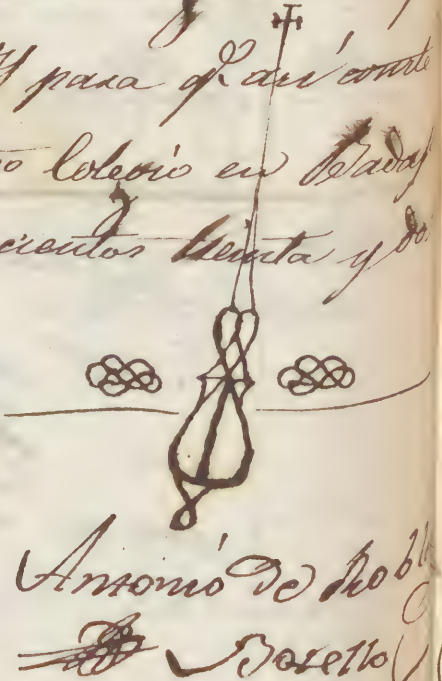 Y para q. así conste
Colegio en Badaj
cientos treinta y dos
Antonio de Robl
Botello